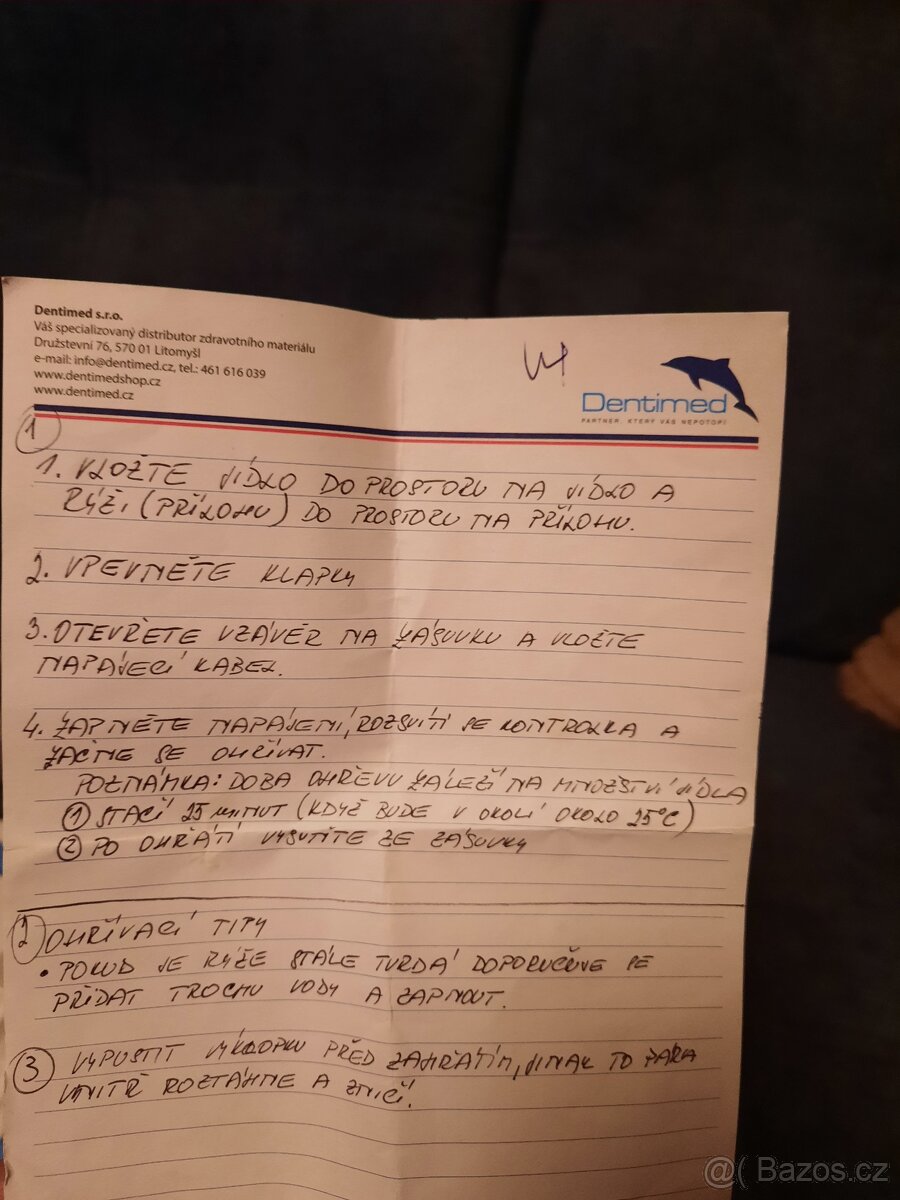 Dentimed s.r.o.
Váš specializovaný distributor zdravotního materiálu
Družstevní 76, 570 01 Litomyšl
e-mail: info@dentimed.cz, tel.: 461 616 039
www.dentimedshop.cz
www.dentimed.cz
Dentimed
PARTNER, KTERÝ VÁS NEPOTOPÍ
1
1. VLOŽTE JÍDLO DO PROSTORU NA JÍDLO A
RÝŽI (PŘÍLOHU) DO PROSTORU NA PŘÍLOHU.
2. VPEVNĚTE KLAPKY
3. OTEVŘETE UZÁVĚR NA ZÁSUVKU A VLOŽTE
NAPÁJECÍ KABEL.
4. ZAPNĚTE NAPÁJENÍ, ROZSVÍTÍ SE KONTROLKA A
ZAČNE SE OHŘÍVAT.
POZNÁMKA: DOBA OHŘEVU ZÁLEŽÍ NA MNOŽSTVÍ JÍDLA
1 STAČÍ 25 MINUT (KDYŽ BUDE V OKOLÍ OKOLO 25°C)
2 PO OHŘÁTÍ ZE ZÁSUVKY
2 OHŘÍVACÍ TIPY
• POKUD JE RÝŽE STÁLE TVRDÁ DOPORUČUJE SE
PŘIDAT TROCHU VODY A ZAPNOUT.
3 VYPUSTIT VÝKLOPKU PŘED ZAHŘÁTÍM, JINAK TO PÁRA
UVNITŘ ROZTÁHNE A ZNIČÍ.
@( Bazos.cz